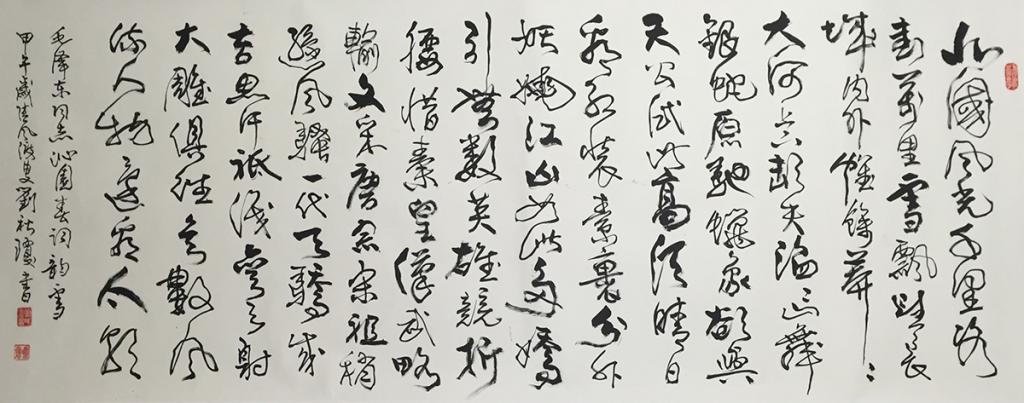 北國風光千里冰
封萬里雪飄望長
城內外惟餘莽〻
大河上下頓失滔〻山舞
銀蛇原馳蠟象欲與
天公試比高須晴日
看紅裝素裹分外
妖嬈江山如此多嬌
引無數英雄競折
腰惜秦皇漢武略
輸文采唐宗宋祖稍
遜風騷一代天驕成
吉思汗祇識彎弓射
大雕俱往矣數風
流人物還看今朝
毛澤東同志沁園春詞韵雪
甲午歲清風叟劉書